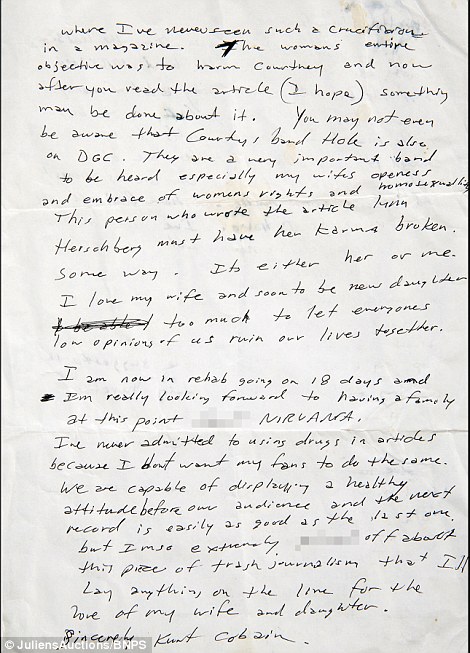 where I've never seen such a crucifixion
in a magazine. The womans entire
objective was to harm Courtney and now
after you read the article (I hope) something
may be done about it. You may not even
be aware that Courtys band Hole is also
on DGC. They are a very important band
to be heard especially my wifes openess
and embrace of womens rights and homosexuality
This person who wrote the article lynn
Herschberg must have her karma broken.
Some way. Its either her or me.
I love my wife and soon to be new daughter
too much to let everyones
low opinions of us ruin our lives together.
I am now in rehab going on 18 days and
Im really looking forward to having a family
at this point NIRVANA.
Ive never admitted to using drugs in articles
because I dont want my fans to do the same.
We are capable of displaying a healthy
attitude before our audience and the next
record is easily as good as the last one.
but Im so extremely off about
this piece of trash journalism that Ill
Lay anything on the line for the
love of my wife and daughter.
Sincerely Kurt Cobain.
© JuliensAuctions/BNPS